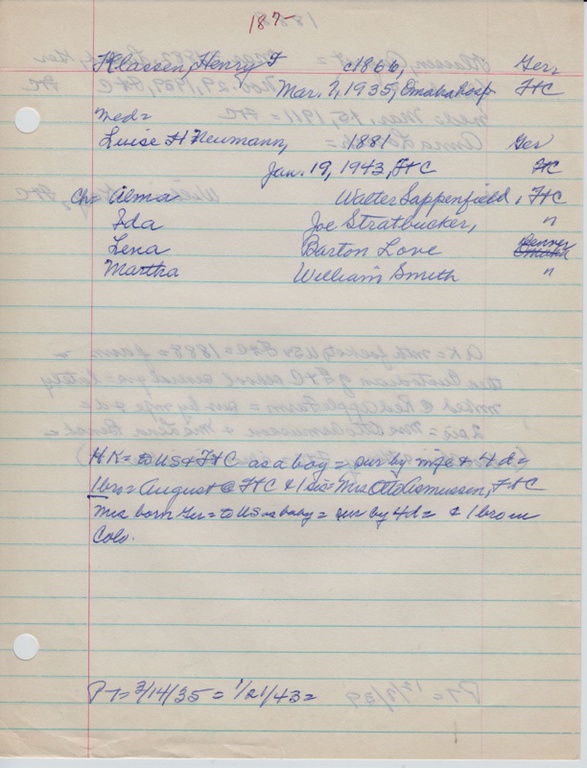 187-
Klassen, Henry F c1866, Ger
Mar. 7, 1935, Omaha Hosp FtC
Med=
Luise H Neumann, 1881 Ger
Jan. 19, 1943, FtC FtC
Ch= Alma Walter Sappenfield, FtC
Ida Joe Stratbucker, "
Lena Barton Love Denver
Martha William Smith "
HK= to US & FtC as a boy = sur by wife & 4 d=
1 bro= August @ FtC & 1 sis= Mrs Otto Asmussen, FtC
Mrs born Ger= to US as baby= sur by 4d= & 1 bro in
Colo.
PT= 3/14/35 = 1/21/43=